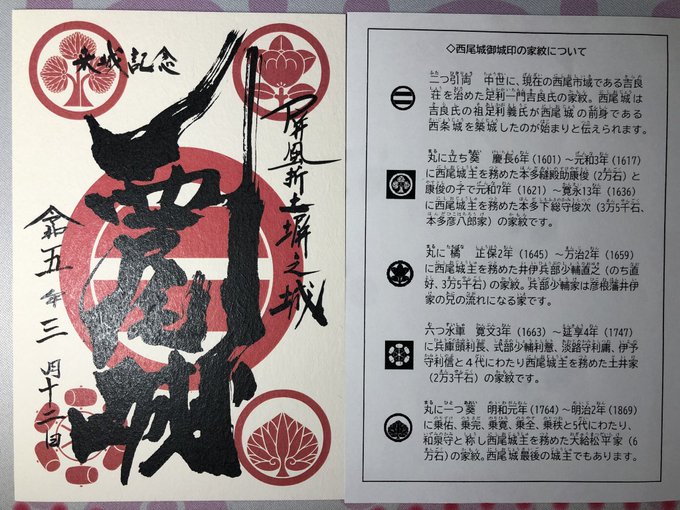 来城記念
屏風折土塀之城
西尾城
令和五年三月十二日
◇西尾城御城印の家紋について
二つ引両　中世に、現在の西尾市域である吉良
荘を治めた足利一門吉良氏の家紋。西尾城は
吉良氏の祖足利義氏が西尾城の前身である
西条城を築城したのが始まりと伝えられます。
丸に立ち葵　慶長6年(1601)～元和3年(1617)
に西尾城主を務めた本多縫殿助康俊(2万石)と
康俊の子で元和7年(1621)～寛永13年(1636)
に西尾城主を務めた本多下総守俊次(3万5千石、
本多彦八郎家)の家紋です。
丸に橘　正保2年(1645)～万治2年(1659)
に西尾城主を務めた井伊兵部少輔直之(のち直
好、3万5千石)の家紋。兵部少輔家は彦根藩井伊
家の兄の流れになる家です。
六つ水車　寛文3年(1663)～延享4年(1747)
に兵庫頭利長、式部少輔利意、淡路守利庸、伊予
守利信と4代にわたり西尾城主を務めた土井家
(2万3千石)の家紋です。
丸に一つ葵　明和元年(1764)～明治2年(1869)
に乗佑、乗完、乗寛、乗全、乗秩と5代にわたり、
和泉守と称し西尾城主を務めた大給松平家(6
万石)の家紋。西尾城最後の城主でもあります。